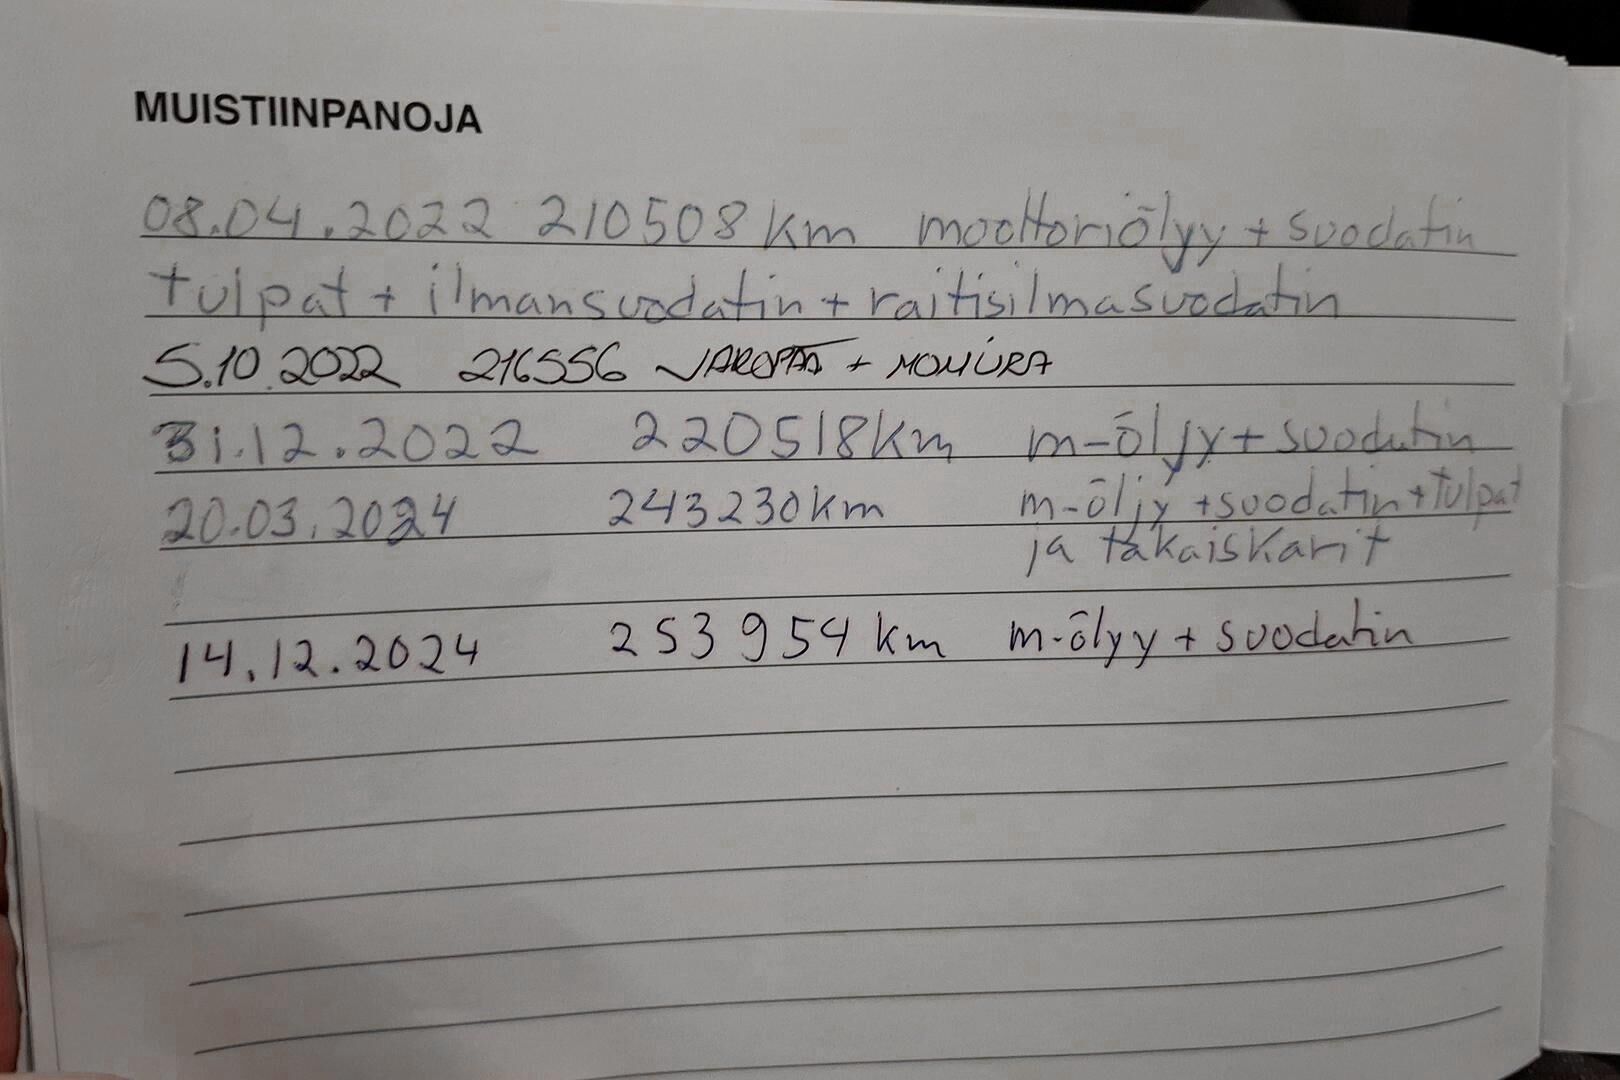 MUISTIINPANOJA
08.04.2022 210508 km moottoriölyy + suodatin
tulpat + ilmansuodatin + raitisilmasuodatin
5.10.2022 216556 JAROPÄÄ + MONIURA
31.12.2022 220518 km m-öljy + suodatin
20.03.2024 243230 km m-öljy + suodatin + Tulpat
ja takaiskarit
14.12.2024 253954 km m-ölyy + suodatin